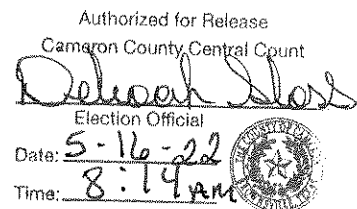 Authorized for Release
Cameron County Central Count
Deborah
Election Official
Date: 5-16-22
Time: 8:14 AM